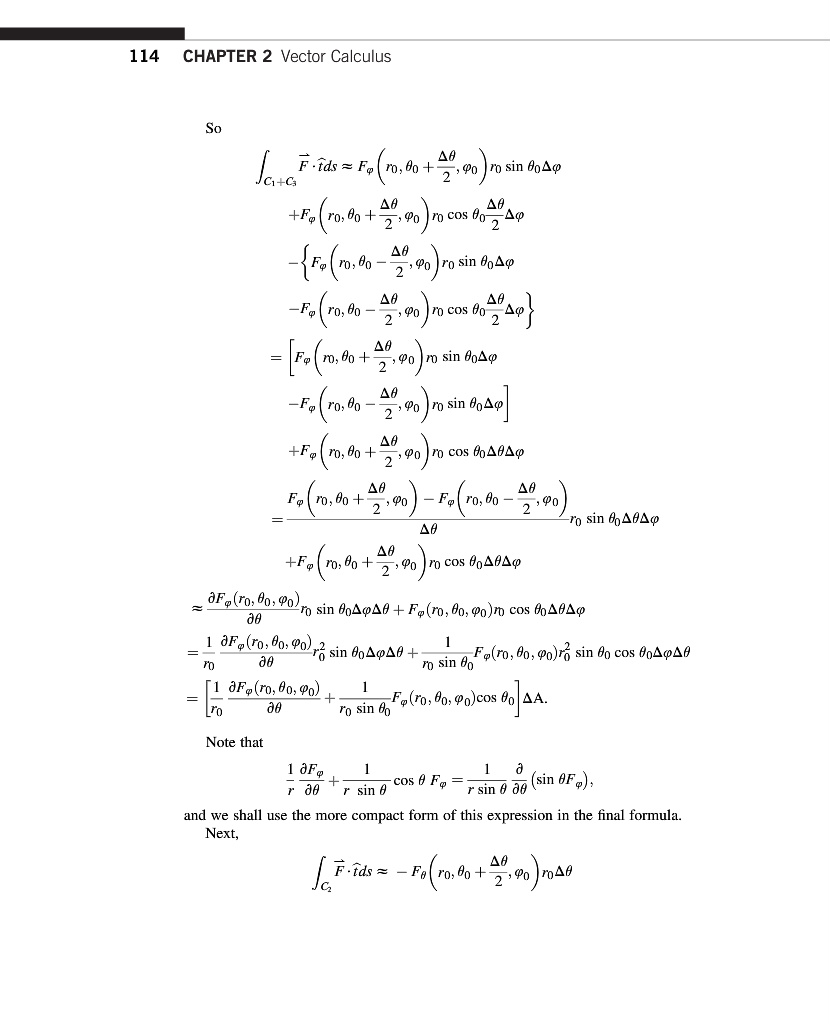 114 CHAPTER 2 Vector Calculus
So
∫_{C₁+C₃} F⃗ · t̂ds ≈ F_φ(r₀, θ₀ + Δθ/2, φ₀) r₀ sin θ₀Δφ
+F_φ(r₀, θ₀ + Δθ/2, φ₀) r₀ cos θ₀ Δθ/2 Δφ
−{F_φ(r₀, θ₀ − Δθ/2, φ₀) r₀ sin θ₀Δφ
−F_φ(r₀, θ₀ − Δθ/2, φ₀) r₀ cos θ₀ Δθ/2 Δφ}
= [F_φ(r₀, θ₀ + Δθ/2, φ₀) r₀ sin θ₀Δφ
−F_φ(r₀, θ₀ − Δθ/2, φ₀) r₀ sin θ₀Δφ]
+F_φ(r₀, θ₀ + Δθ/2, φ₀) r₀ cos θ₀ΔθΔφ
= (F_φ(r₀, θ₀ + Δθ/2, φ₀) − F_φ(r₀, θ₀ − Δθ/2, φ₀))/Δθ r₀ sin θ₀ΔθΔφ
+F_φ(r₀, θ₀ + Δθ/2, φ₀) r₀ cos θ₀ΔθΔφ
≈ ∂F_φ(r₀, θ₀, φ₀)/∂θ r₀ sin θ₀ΔφΔθ + F_φ(r₀, θ₀, φ₀)r₀ cos θ₀ΔθΔφ
= 1/r₀ ∂F_φ(r₀, θ₀, φ₀)/∂θ r₀² sin θ₀ΔφΔθ + 1/(r₀ sin θ₀) F_φ(r₀, θ₀, φ₀)r₀² sin θ₀ cos θ₀ΔφΔθ
= [1/r₀ ∂F_φ(r₀, θ₀, φ₀)/∂θ + 1/(r₀ sin θ₀) F_φ(r₀, θ₀, φ₀)cos θ₀] ΔA.
Note that
1/r ∂F_φ/∂θ + 1/(r sin θ) cos θ F_φ = 1/(r sin θ) ∂/∂θ (sin θF_φ),
and we shall use the more compact form of this expression in the final formula.
Next,
∫_{C₂} F⃗ · t̂ds ≈ − F_θ(r₀, θ₀ + Δθ/2, φ₀) r₀Δθ